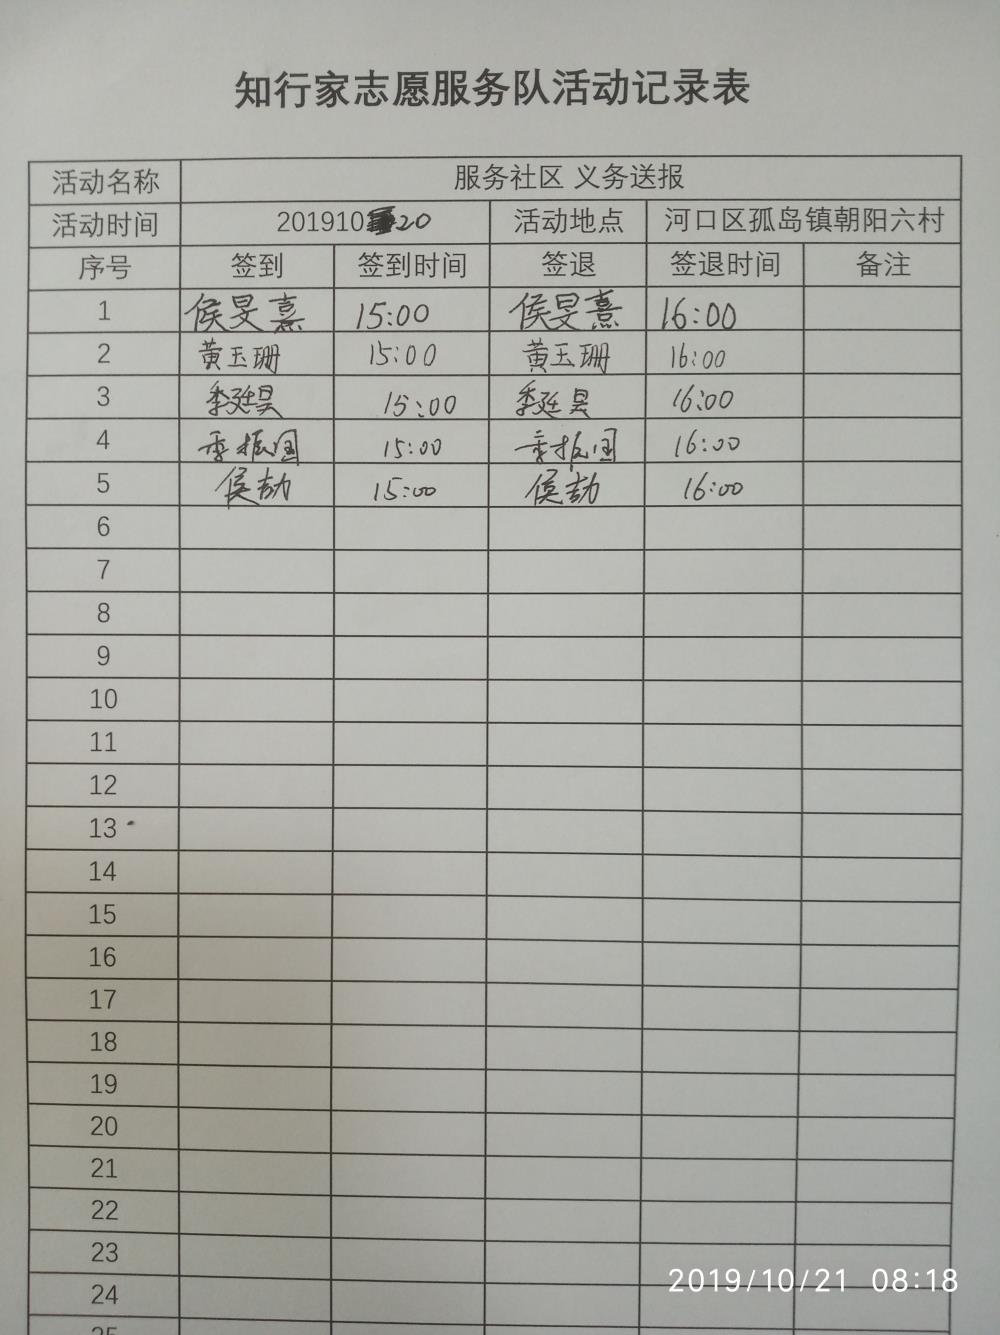 知行家志愿服务队活动记录表
活动名称 服务社区 义务送报
活动时间 20191020 活动地点 河口区孤岛镇朝阳六村
序号 签到 签到时间 签退 签退时间 备注
1 侯旻熹 15:00 侯旻熹 16:00
2 黄玉珊 15:00 黄玉珊 16:00
3 季廷昊 15:00 季廷昊 16:00
4 季振国 15:00 季振国 16:00
5 侯劼 15:00 侯劼 16:00
6
7
8
9
10
11
12
13
14
15
16
17
18
19
20
21
22
23
2019/10/21 08:18
24
25